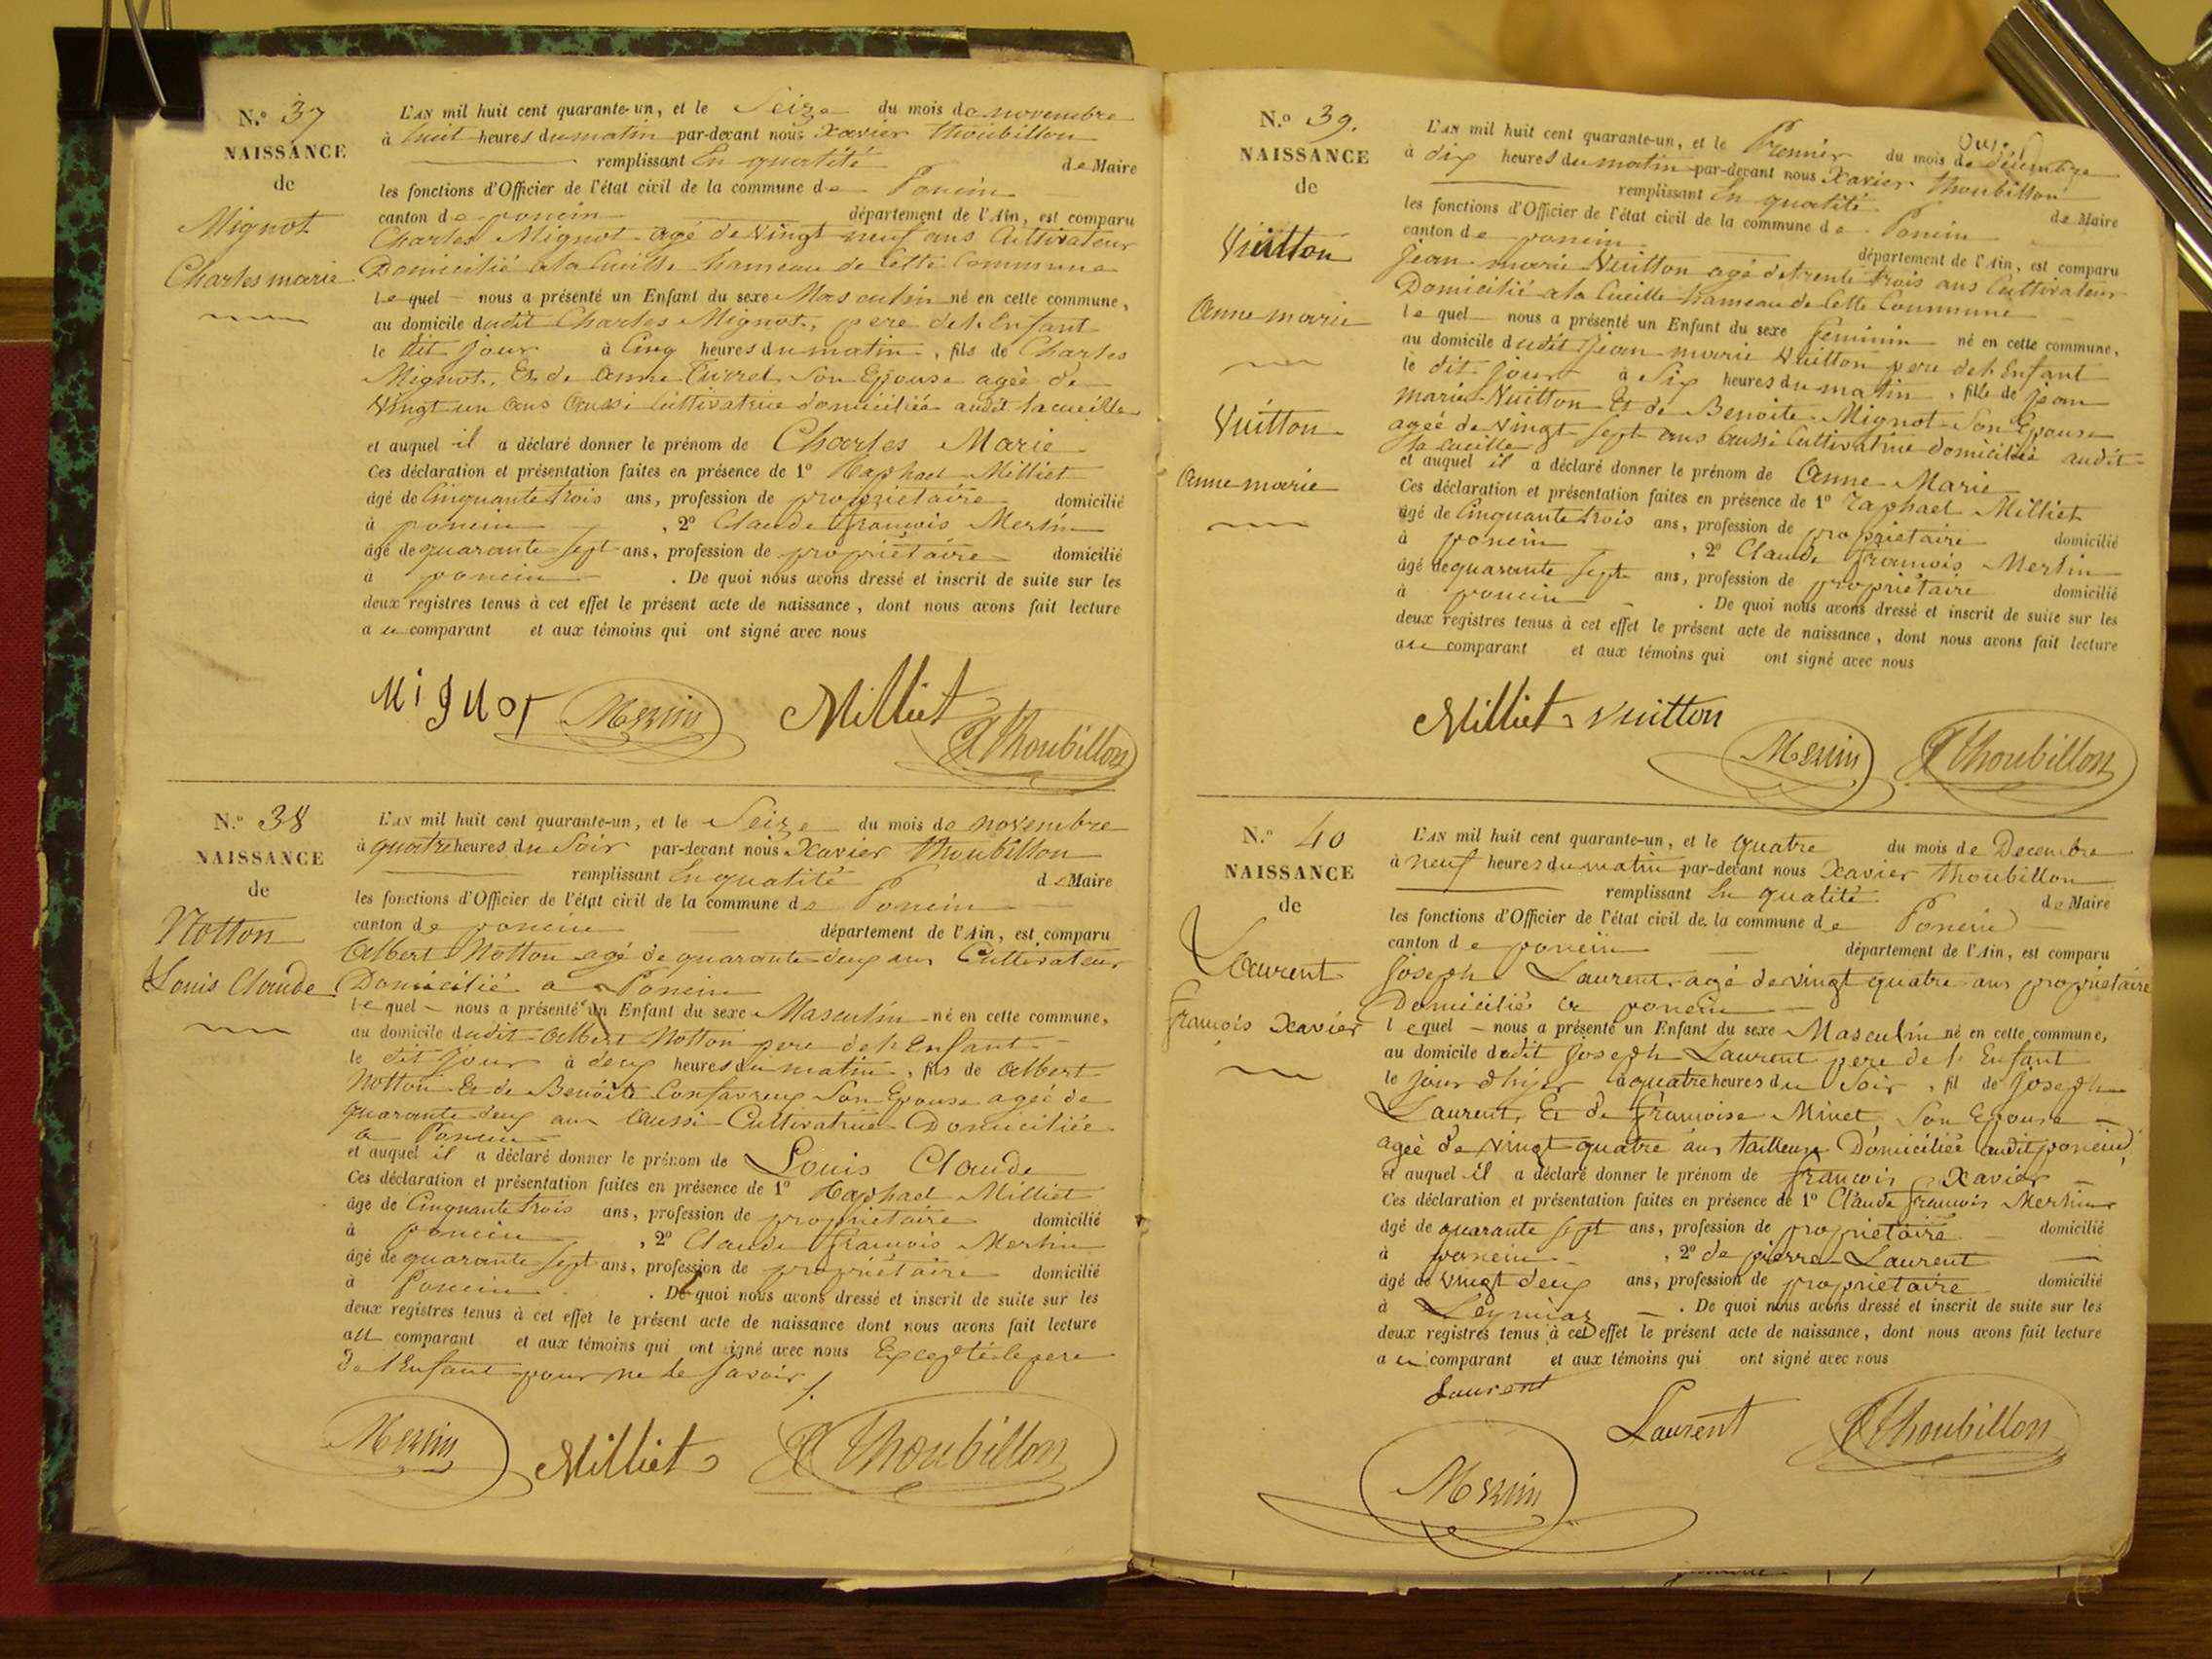 N.° 37
NAISSANCE
de
Mignot
Charles marie
L'AN mil huit cent quarante-un, et le Seize du mois de novembre
à huit heures du matin par-devant nous Xavier Thoubillon
remplissant En qualité de Maire
les fonctions d'Officier de l'état civil de la commune de Poncin
canton de poncin département de l'Ain, est comparu
Charles Mignot agé de vingt neuf ans Cultivateur
Domicilié a la Cueille hameau de Cette Commune
lequel nous a présenté un Enfant du sexe Masculin né en cette commune,
au domicile dudit Charles Mignot, pere de l'Enfant
le dit jour à Cinq heures du matin, fils de Charles
Mignot, Et de Anne son Epouse agée de
Vingt un ans Aussi Cultivatrice domiciliée audit la cueille
et auquel il a déclaré donner le prénom de Charles Marie
Ces déclaration et présentation faites en présence de 1° Raphael Milliet
âgé de Cinquante trois ans, profession de propriétaire domicilié
à poncin, 2° Claude françois Merlin
âgé de quarante sept ans, profession de propriétaire domicilié
à poncin. De quoi nous avons dressé et inscrit de suite sur les
deux registres tenus à cet effet le présent acte de naissance, dont nous avons fait lecture
au comparant et aux témoins qui ont signé avec nous
Mignot Merlin Milliet Thoubillon
N.° 38
NAISSANCE
de
Notton
Louis Claude
L'AN mil huit cent quarante-un, et le Seize du mois de novembre
à quatre heures du Soir par-devant nous Xavier Thoubillon
remplissant En qualité de Maire
les fonctions d'Officier de l'état civil de la commune de Poncin
canton de poncin département de l'Ain, est comparu
Albert Notton agé de quarante deux ans Cultivateur
Domicilié a Poncin
lequel nous a présenté un Enfant du sexe Masculin né en cette commune,
au domicile dudit Albert Notton pere de l'Enfant
le dit jour à deux heures du matin, fils de Albert
Notton Et de Benoite Confavreux Son Epouse agée de
quarante deux ans Aussi Cultivatrice Domiciliée
a Poncin
et auquel il a déclaré donner le prénom de Louis Claude
Ces déclaration et présentation faites en présence de 1° Raphael Milliet
âge de Cinquante trois ans, profession de propriétaire domicilié
à poncin, 2° Claude françois Merlin
âgé de quarante sept ans, profession de propriétaire domicilié
à Poncin. De quoi nous avons dressé et inscrit de suite sur les
deux registres tenus à cet effet le présent acte de naissance dont nous avons fait lecture
au comparant et aux témoins qui ont signé avec nous Excepté le pere
de l'Enfant pour ne le savoir
Merlin Milliet Thoubillon
N.° 39.
NAISSANCE
de
Vuitton
Anne marie
Vuitton
Anne marie
L'AN mil huit cent quarante-un, et le Premier du mois de décembre
à dix heures du matin par-devant nous Xavier Thoubillon
remplissant En qualité de Maire
les fonctions d'Officier de l'état civil de la commune de Poncin
canton de poncin département de l'Ain, est comparu
Jean marie Vuitton agé de trente trois ans Cultivateur
Domicilié a la Cueille hameau de Cette Commune
lequel nous a présenté un Enfant du sexe feminin né en cette commune,
au domicile dudit Jean marie Vuitton pere de l'Enfant
le dit jour à Six heures du matin, fille de jean
marie Vuitton Et de Benoite Mignot Son Epouse
agée de vingt sept ans Aussi Cultivatrice domiciliée audit
la cueille
et auquel il a déclaré donner le prénom de Anne Marie
Ces déclaration et présentation faites en présence de 1° Raphael Milliet
âgé de Cinquante trois ans, profession de propriétaire domicilié
à poncin, 2° Claude françois Merlin
âgé de quarante sept ans, profession de propriétaire domicilié
à poncin. De quoi nous avons dressé et inscrit de suite sur les
deux registres tenus à cet effet le présent acte de naissance, dont nous avons fait lecture
au comparant et aux témoins qui ont signé avec nous
Milliet Vuitton
Merlin Thoubillon
N.° 40
NAISSANCE
de
Laurent
françois Xavier
L'AN mil huit cent quarante-un, et le quatre du mois de Decembre
à neuf heures du matin par-devant nous Xavier Thoubillon
remplissant En qualité de Maire
les fonctions d'Officier de l'état civil de la commune de Poncin
canton de poncin département de l'Ain, est comparu
Joseph Laurent, agé de vingt quatre ans propriétaire
Domicilié a poncin
lequel nous a présenté un Enfant du sexe Masculin né en cette commune,
au domicile dudit Joseph Laurent pere de l'Enfant
le jour d'hier à quatre heures du Soir, fil de Joseph
Laurent, Et de françoise Minet, Son Epouse
agée de vingt quatre ans tailleuse Domiciliée audit poncin,
et auquel il a déclaré donner le prénom de françois Xavier
Ces déclaration et présentation faites en présence de 1° Claude françois Merlin
âgé de quarante sept ans, profession de propriétaire domicilié
à poncin, 2° de pierre Laurent
âgé de vingt deux ans, profession de propriétaire domicilié
à Leymiaz. De quoi nous avons dressé et inscrit de suite sur les
deux registres tenus à cet effet le présent acte de naissance, dont nous avons fait lecture
au comparant et aux témoins qui ont signé avec nous
Laurent
Laurent Thoubillon
Merlin